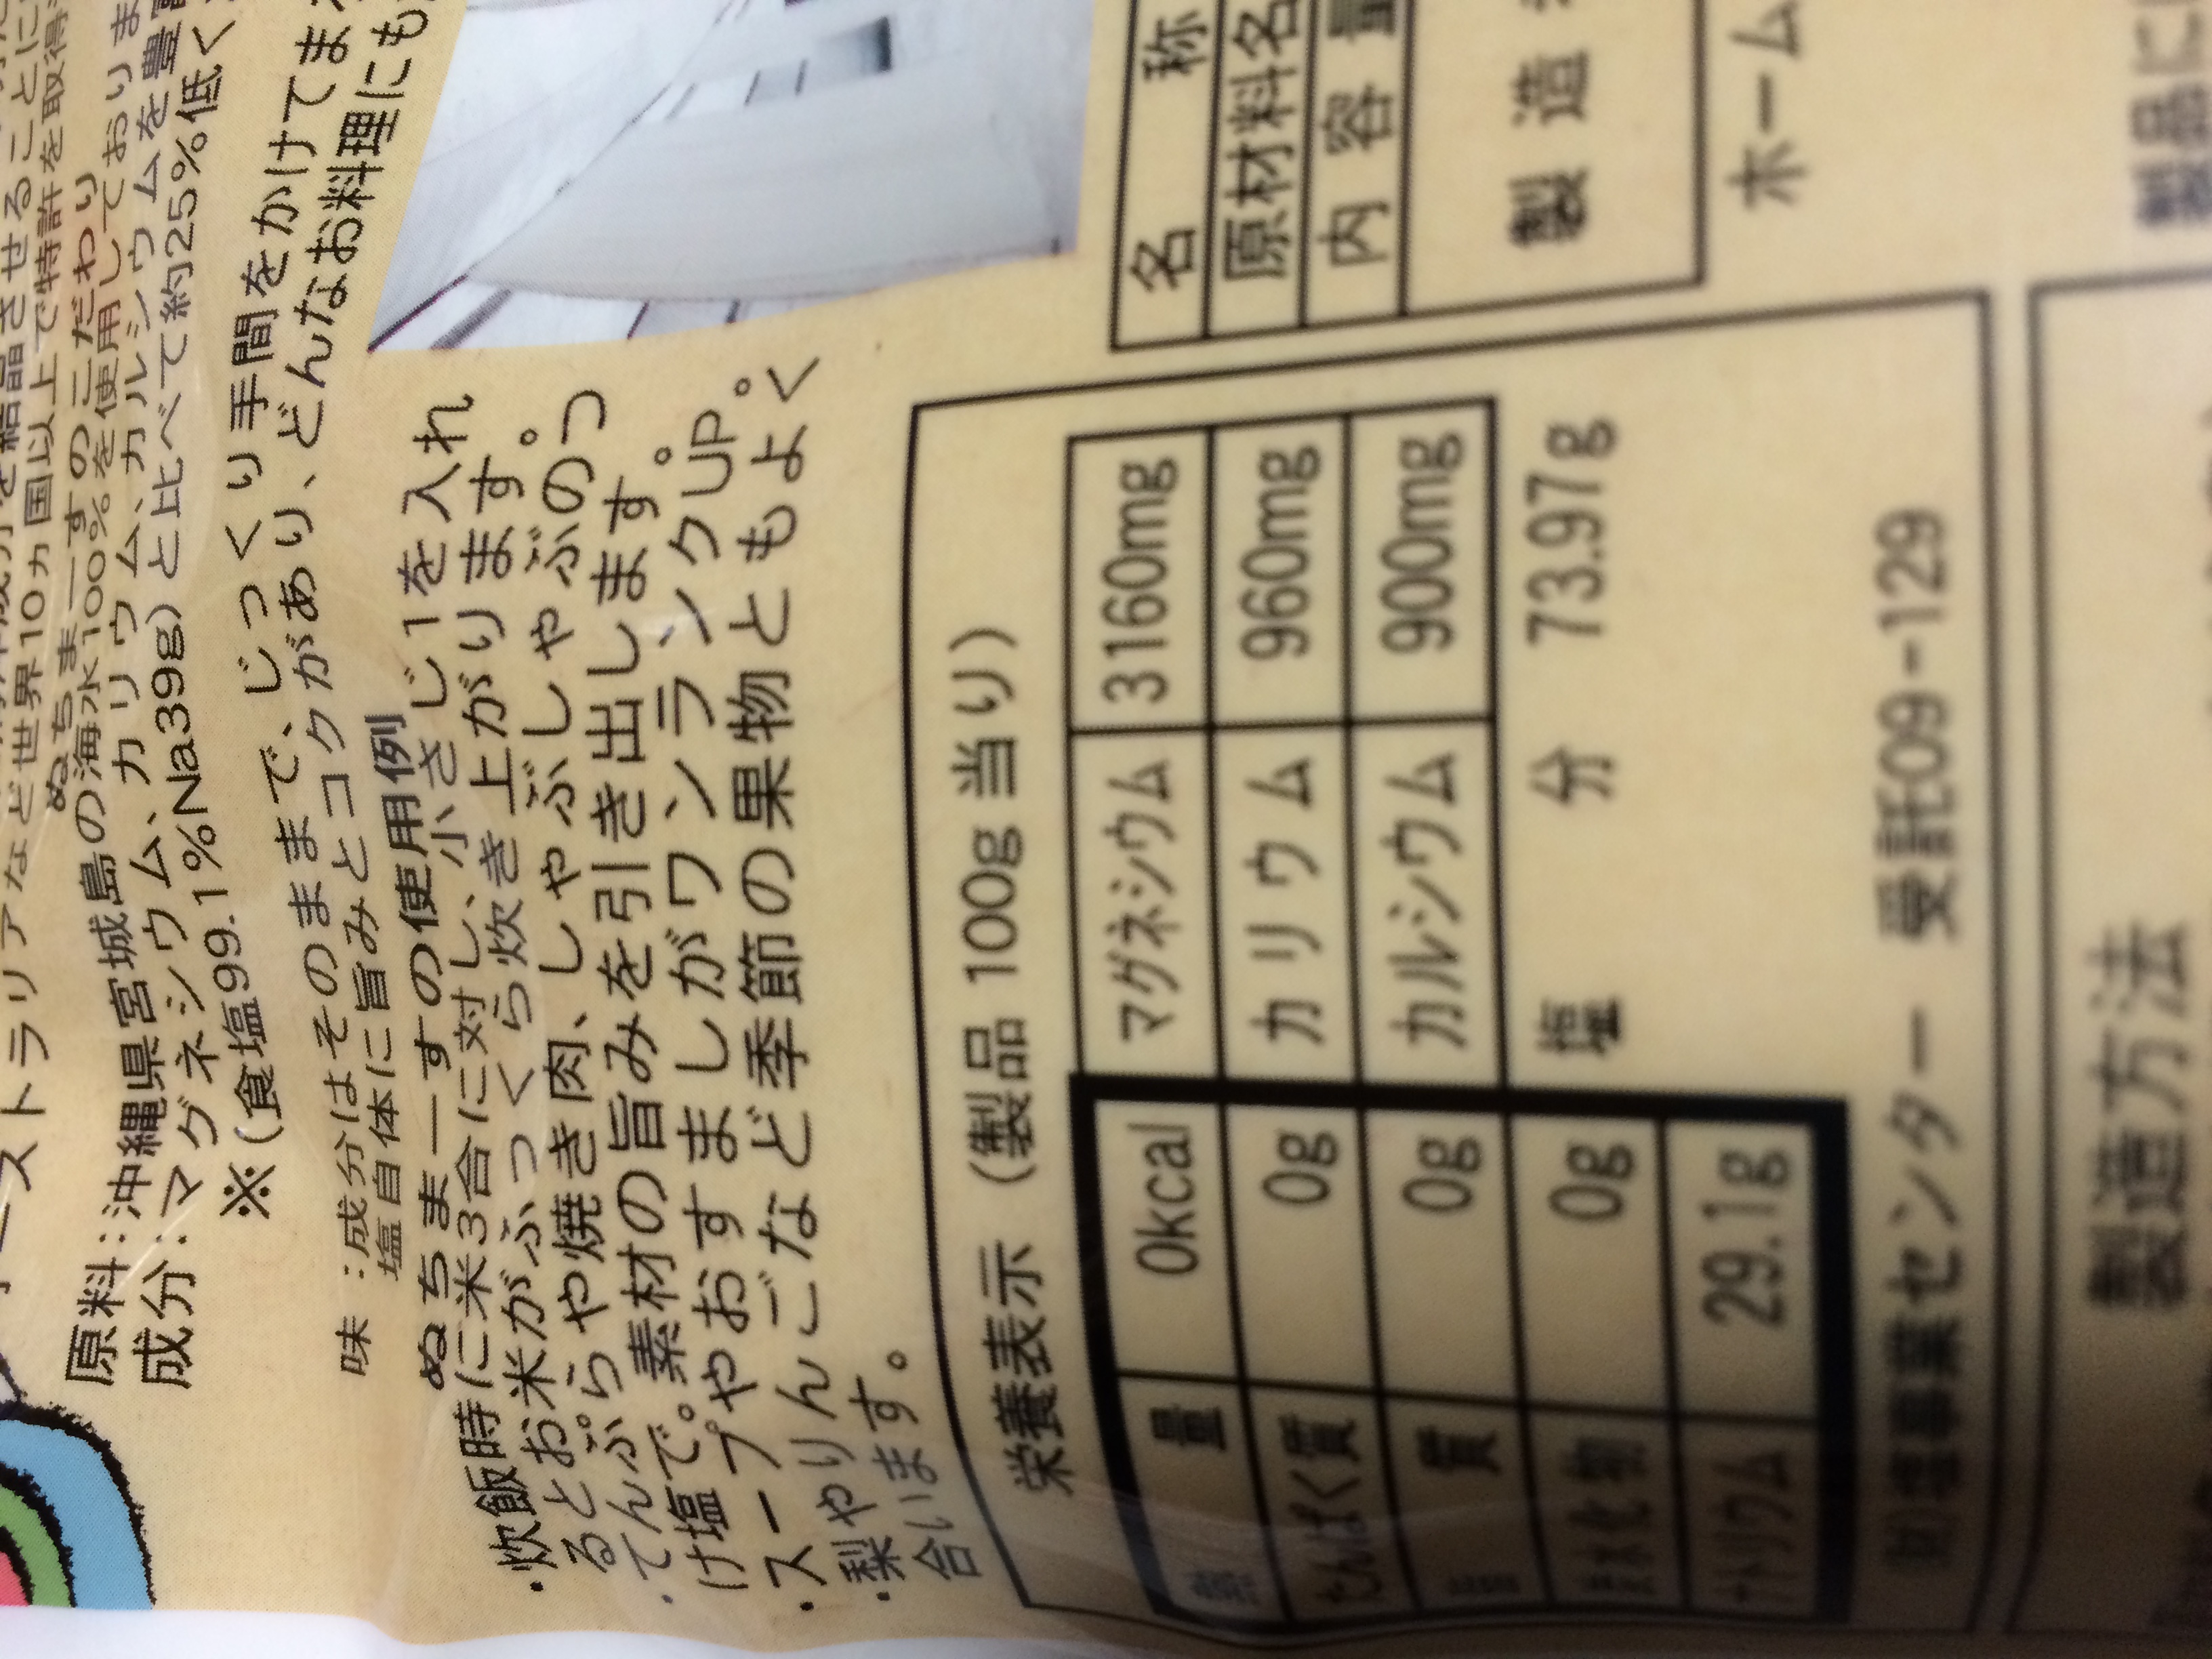 分を結晶させることに
ストラリアなど世界10ヵ国以上で特許を取得
ぬちまーすのこだわり
原料：沖縄県宮城島の海水100%を使用しておりま
成分：マグネシウム、カリウム、カルシウムを豊富
※(食塩99.1%Na39g)と比べて約25%低く
味：成分はそのままで、じっくり手間をかけてま
塩自体に旨みとコクがあり、どんなお料理にも
ぬちまーすの使用例
・炊飯時に米3合に対し、小さじ1を入れ
るとお米がふっくら炊き上がります。
・てんぷらや焼き肉、しゃぶしゃぶのつ
け塩で。素材の旨みを引き出します。
・スープやおすましがワンランクUP。
・梨やりんごなど季節の果物ともよく
合います。
栄養表示 (製品 100g 当り)
熱量 0kcal マグネシウム 3160mg
たんぱく質 0g カリウム 960mg
脂質 0g カルシウム 900mg
炭水化物 0g 塩分 73.97g
ナトリウム 29.1g
(財)塩事業センター 受託09-129
名称
原材料名
内容量
製造
ホーム
製造方法
製品に